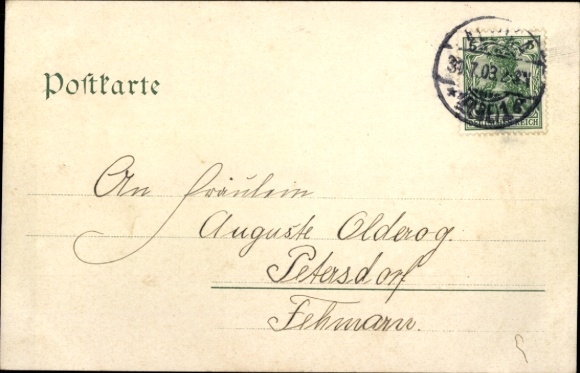 Postkarte
An Fräulein
Auguste Olderog.
Petersdorf
Fehmarn.